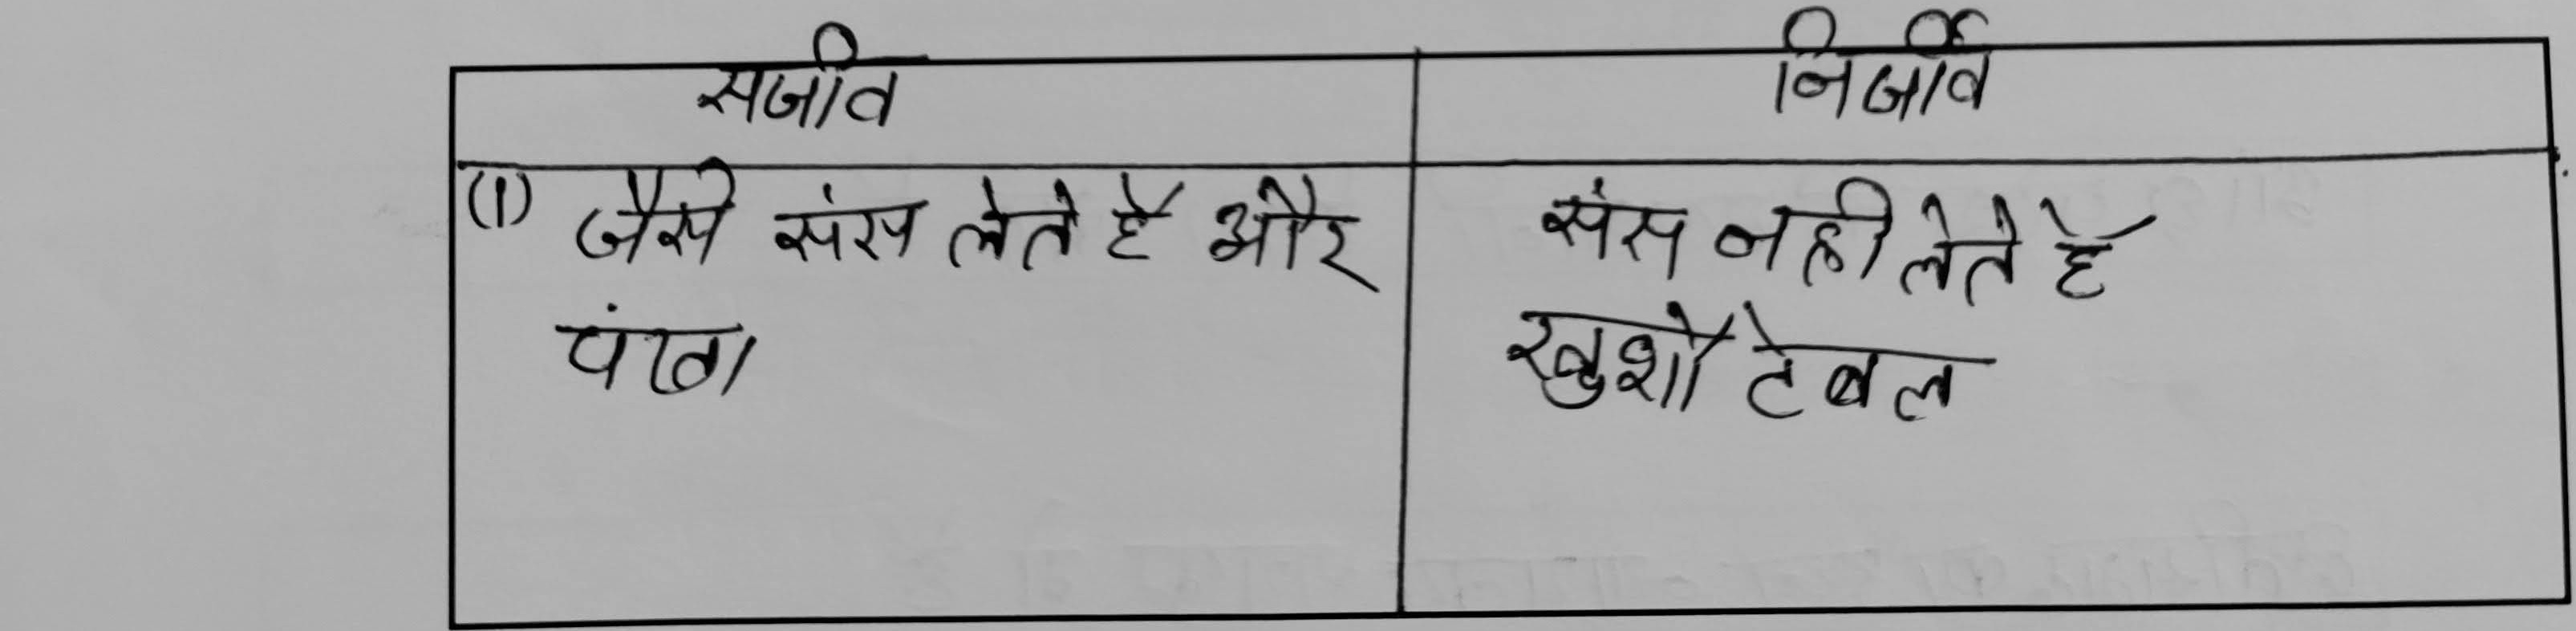 सजीव
निर्जीव
(1) जैसे संस लेते है और
पंखा
संस नही लेते है
खुर्शी टेबल